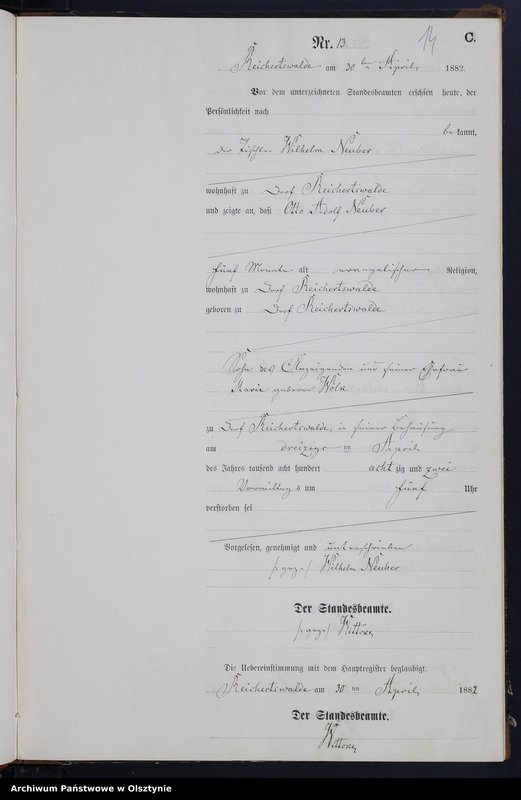 14
C.
Nr. 13.
Reichertswalde am 30 ten April 1882.
Vor dem unterzeichneten Standesbeamten erschien heute, der
Persönlichkeit nach
be kannt,
der Tischler Wilhelm Neuber
wohnhaft zu Dorf Reichertswalde
und zeigte an, daß Otto Adolf Neuber
fünf Monate alt evangelischer Religion,
wohnhaft zu Dorf Reichertswalde
geboren zu Dorf Reichertswalde
Sohn des Anzeigenden und seiner Ehefrau
Marie geborene Wölk
zu Dorf Reichertswalde, in seiner Behausung
am dreizigs ten April
des Jahres tausend acht hundert acht zig und zwei
Vormittags um fünf Uhr
verstorben sei
Vorgelesen, genehmigt und unterschrieben
/:gez:/ Wilhelm Neuber
Der Standesbeamte.
/:gez:/
Die Uebereinstimmung mit dem Hauptregister beglaubigt.
Reichertswalde am 30 ten April 1882
Der Standesbeamte.
Archiwum Państwowe w Olsztynie